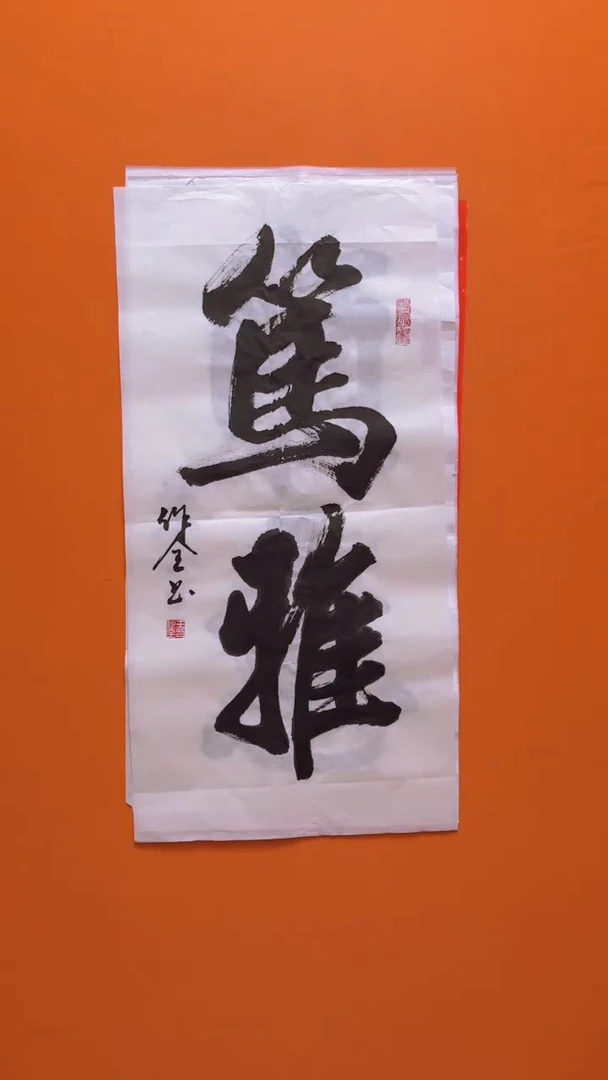 篤雅
作全书